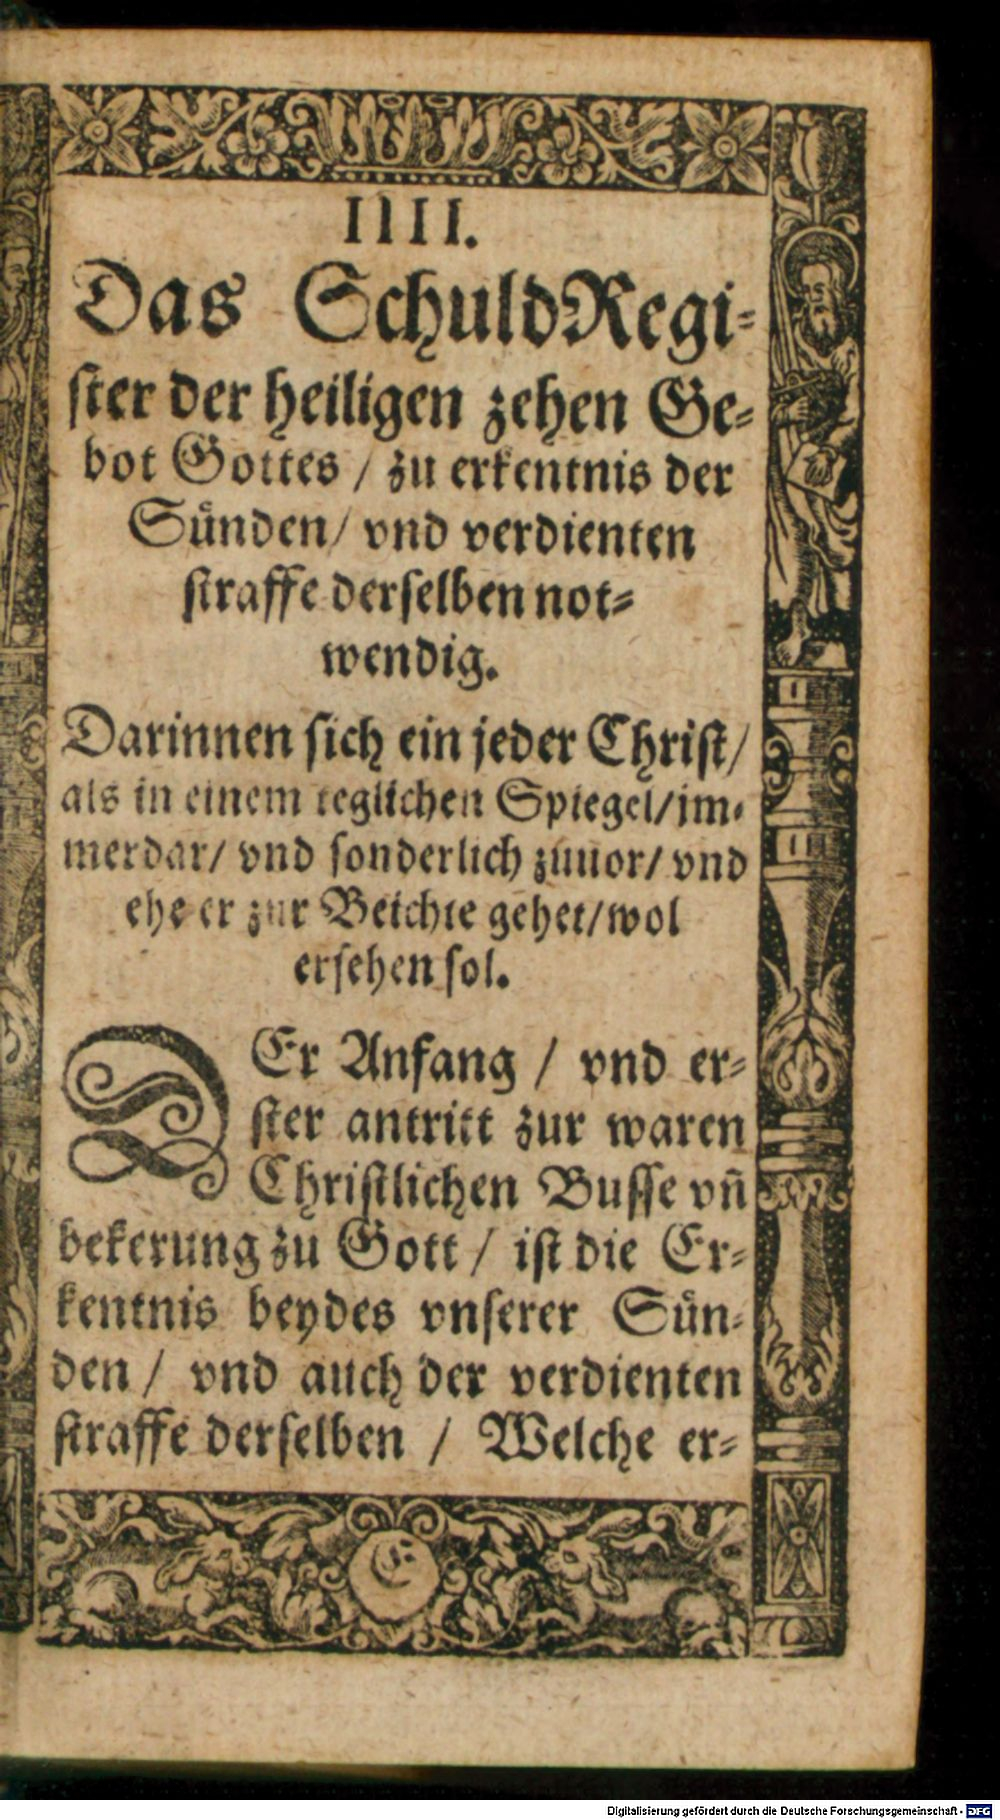 IIII.
Das SchuldRegi-
ster der heiligen zehen Ge-
bot Gottes / zu erkentnis der
Sünden / vnd verdienten
straffe derselben not-
wendig.
Darinnen sich ein jeder Christ /
als in einem teglichen Spiegel / im-
merdar / vnd sonderlich zuuor / vnd
ehe er zur Beichte gehet / wol
ersehen sol.
DEr Anfang / vnd er-
ster antritt zur waren
Christlichen Busse vn̄
bekerung zu Gott / ist die Er-
kentnis beydes vnserer Sün-
den / vnd auch der verdienten
straffe derselben / Welche er-
E
Digitalisierung gefördert durch die Deutsche Forschungsgemeinschaft - DFG